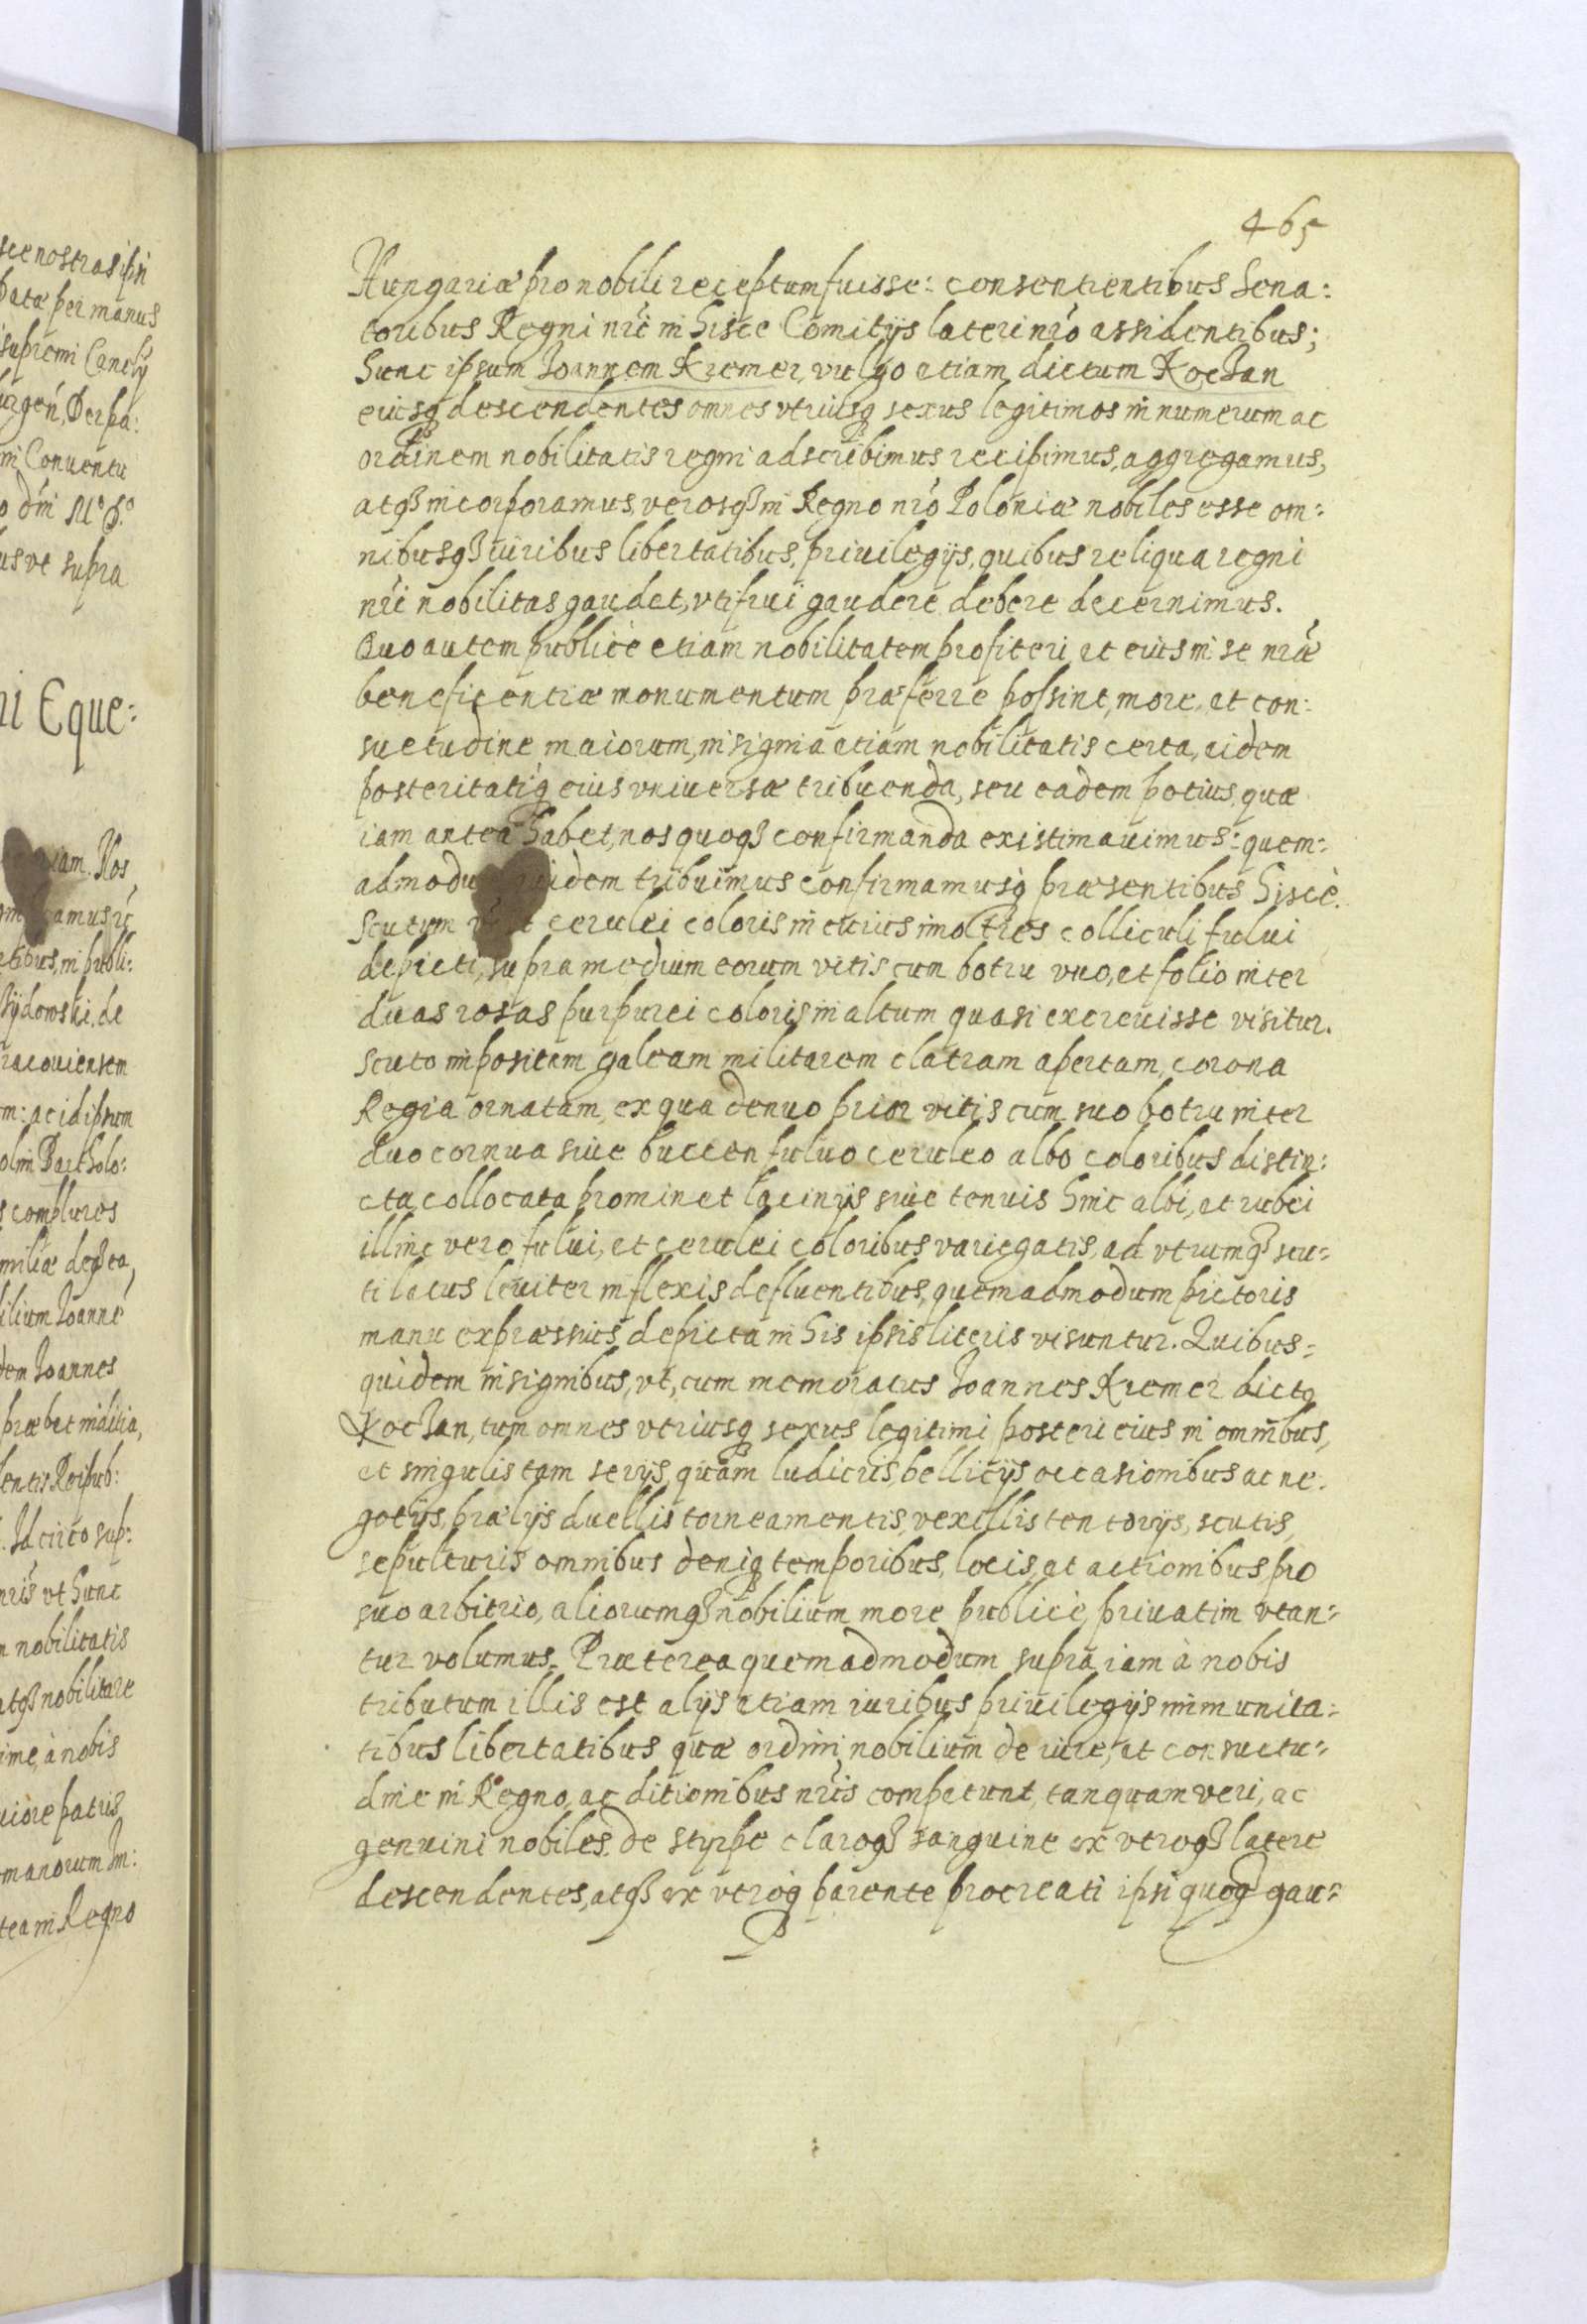 465
Hungariæ pro nobili receptum fuisse: consentientibus Sena:
toribus Regni nr̃i in hisce Comitijs lateri nr̃o assidentibus;
hunc ipsum Ioannem Kremer, vulgo etiam dictum Kochan
eiusq́ descendentes omnes vtriusq́ sexus legitimos in numerum ac
ordinem nobilitatis regni adscribimus recipimus, aggregamus,
atq́ incorporamus, verosq́ in Regno nr̃o Poloniæ nobiles esse om:
nibusq́ iuribus libertatibus, priuilegijs, quibus reliqua regni
nr̃i nobilitas gaudet, vti frui gaudere debere decernimus.
Quo autem publicè etiam nobilitatem profiteri et eius in se nr̃æ
beneficentiæ monumentum præferre possint, more, et con:
suetudine maiorum, insignia etiam nobilitatis certa, eidem
posteritatiq́ eius vniuersæ tribuenda, seu eadem potius, quæ
iam antea habet, nos quoq́ confirmanda existimauimus: quem:
admodu quidem tribuimus confirmamusq́ præsentibus hisce.
scutum cerulei coloris in cuius imo tres colliculi fului
depicti, supra medium eorum vitis cum botru vno, et folio inter
duas rosas purpurei coloris in altum quasi excreuisse visitur.
scuto impositam galeam militarem clatram apertam, corona
Regia ornatam, ex qua denuo prior vitis cum suo botru inter
duo cornua siue buccen fuluo ceruleo albo coloribus distin:
cta collocata prominet lacinijs siue tenuis hinc albi, et rubei
illinc vero fului, et cerulei coloribus variegatis, ad vtrumq́ scu:
ti latus leuiter inflexis defluentibus, quemadmodum pictoris
manu expræssius depicta in his ipsis literis visuntur. Quibus:
quidem insignibus, vt, cum memoratus Ioannes Kremer dictq
Kochan, tum omnes vtriusq́ sexus legitimi posteri eius in omnibus,
et singulis tam serijs, quàm ludicris, bellicijs occasionibus ac ne:
gotijs, prælijs duellis torneamentis, vexillis tentorijs, scutis,
sepulturis omnibus deniq́ temporibus, locis, et actionibus pro
suo arbitrio, aliorumq́ nobilium more publicè, priuatim vtan:
tur volumus. Præterea quemadmodum supra iam à nobis
tributum illis est alijs etiam iuribus priuilegijs immunita:
tibus libertatibus quæ ordini nobilium de iure, et consuetu:
dine in Regno, ac ditionibus nr̃is competunt, tanquam veri, ac
genuini nobiles de styrpe claroq́ sanguine ex vtroq́ latere
descendentes, atq́ ex vtroq́ parente procreati ipsi quoq́ gau: